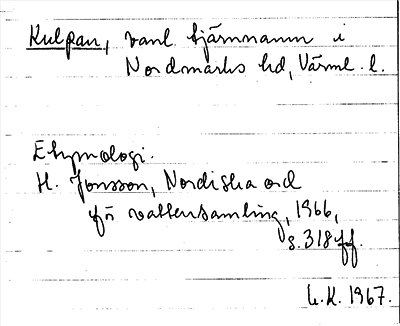 Kulpan, vanl tjärnnamn i
Nordmarks hd, Värml. l.
Etymologi.
H. Jonsson, Nordiska ord
för vattensamling, 1966,
s. 318 ff.
L.K. 1967.